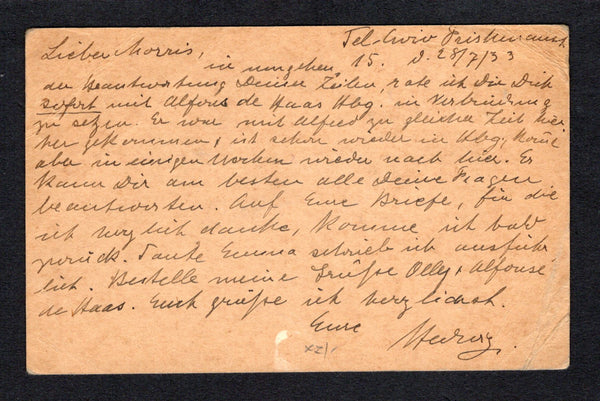 Tel-Aviv
Lieber Morris, 15. d. 28/7/33
in umgehen
der Beantwortung Deiner Zeilen, rate ich Dir Dich
sofort mit Alfons de Haas Hbg. in Verbindung
zu setzen. Er war mit Alfred zu gleicher Zeit hier
her gekommen & ist schon wieder in Hbg., kommt
aber in einigen Wochen wieder nach hier. Er
kann Dir am besten alle Deine Fragen
beantworten. Auf Eure Briefe, für die
ich herzlich danke, komme ich bald
zurück. Tante Emma schrieb ich ausführ
lich. Bestelle meine Grüße Olly & Alfons
de Haas. Euch grüße ich herzlichst.
Eure
Hedwig.